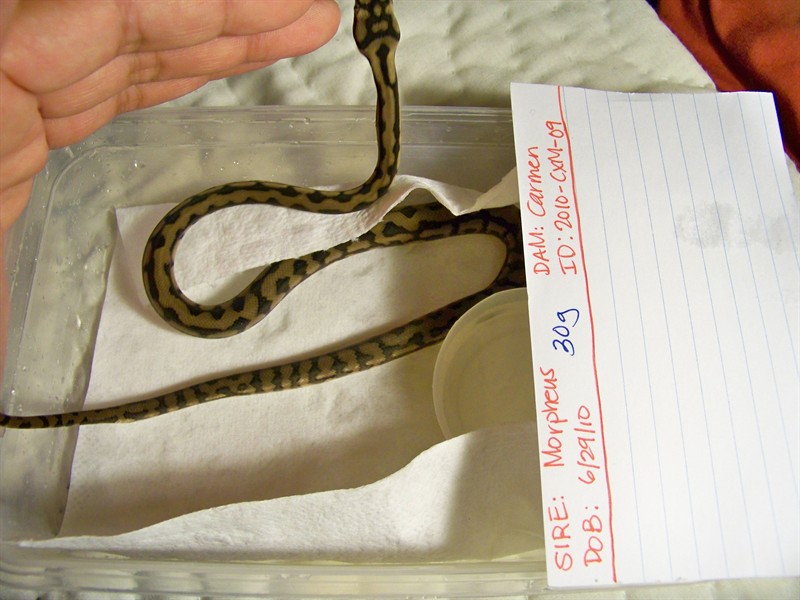 SIRE: Morpheus 30g DAM: Carmen
DOB: 6/29/10 ID: 2010-CXM-09